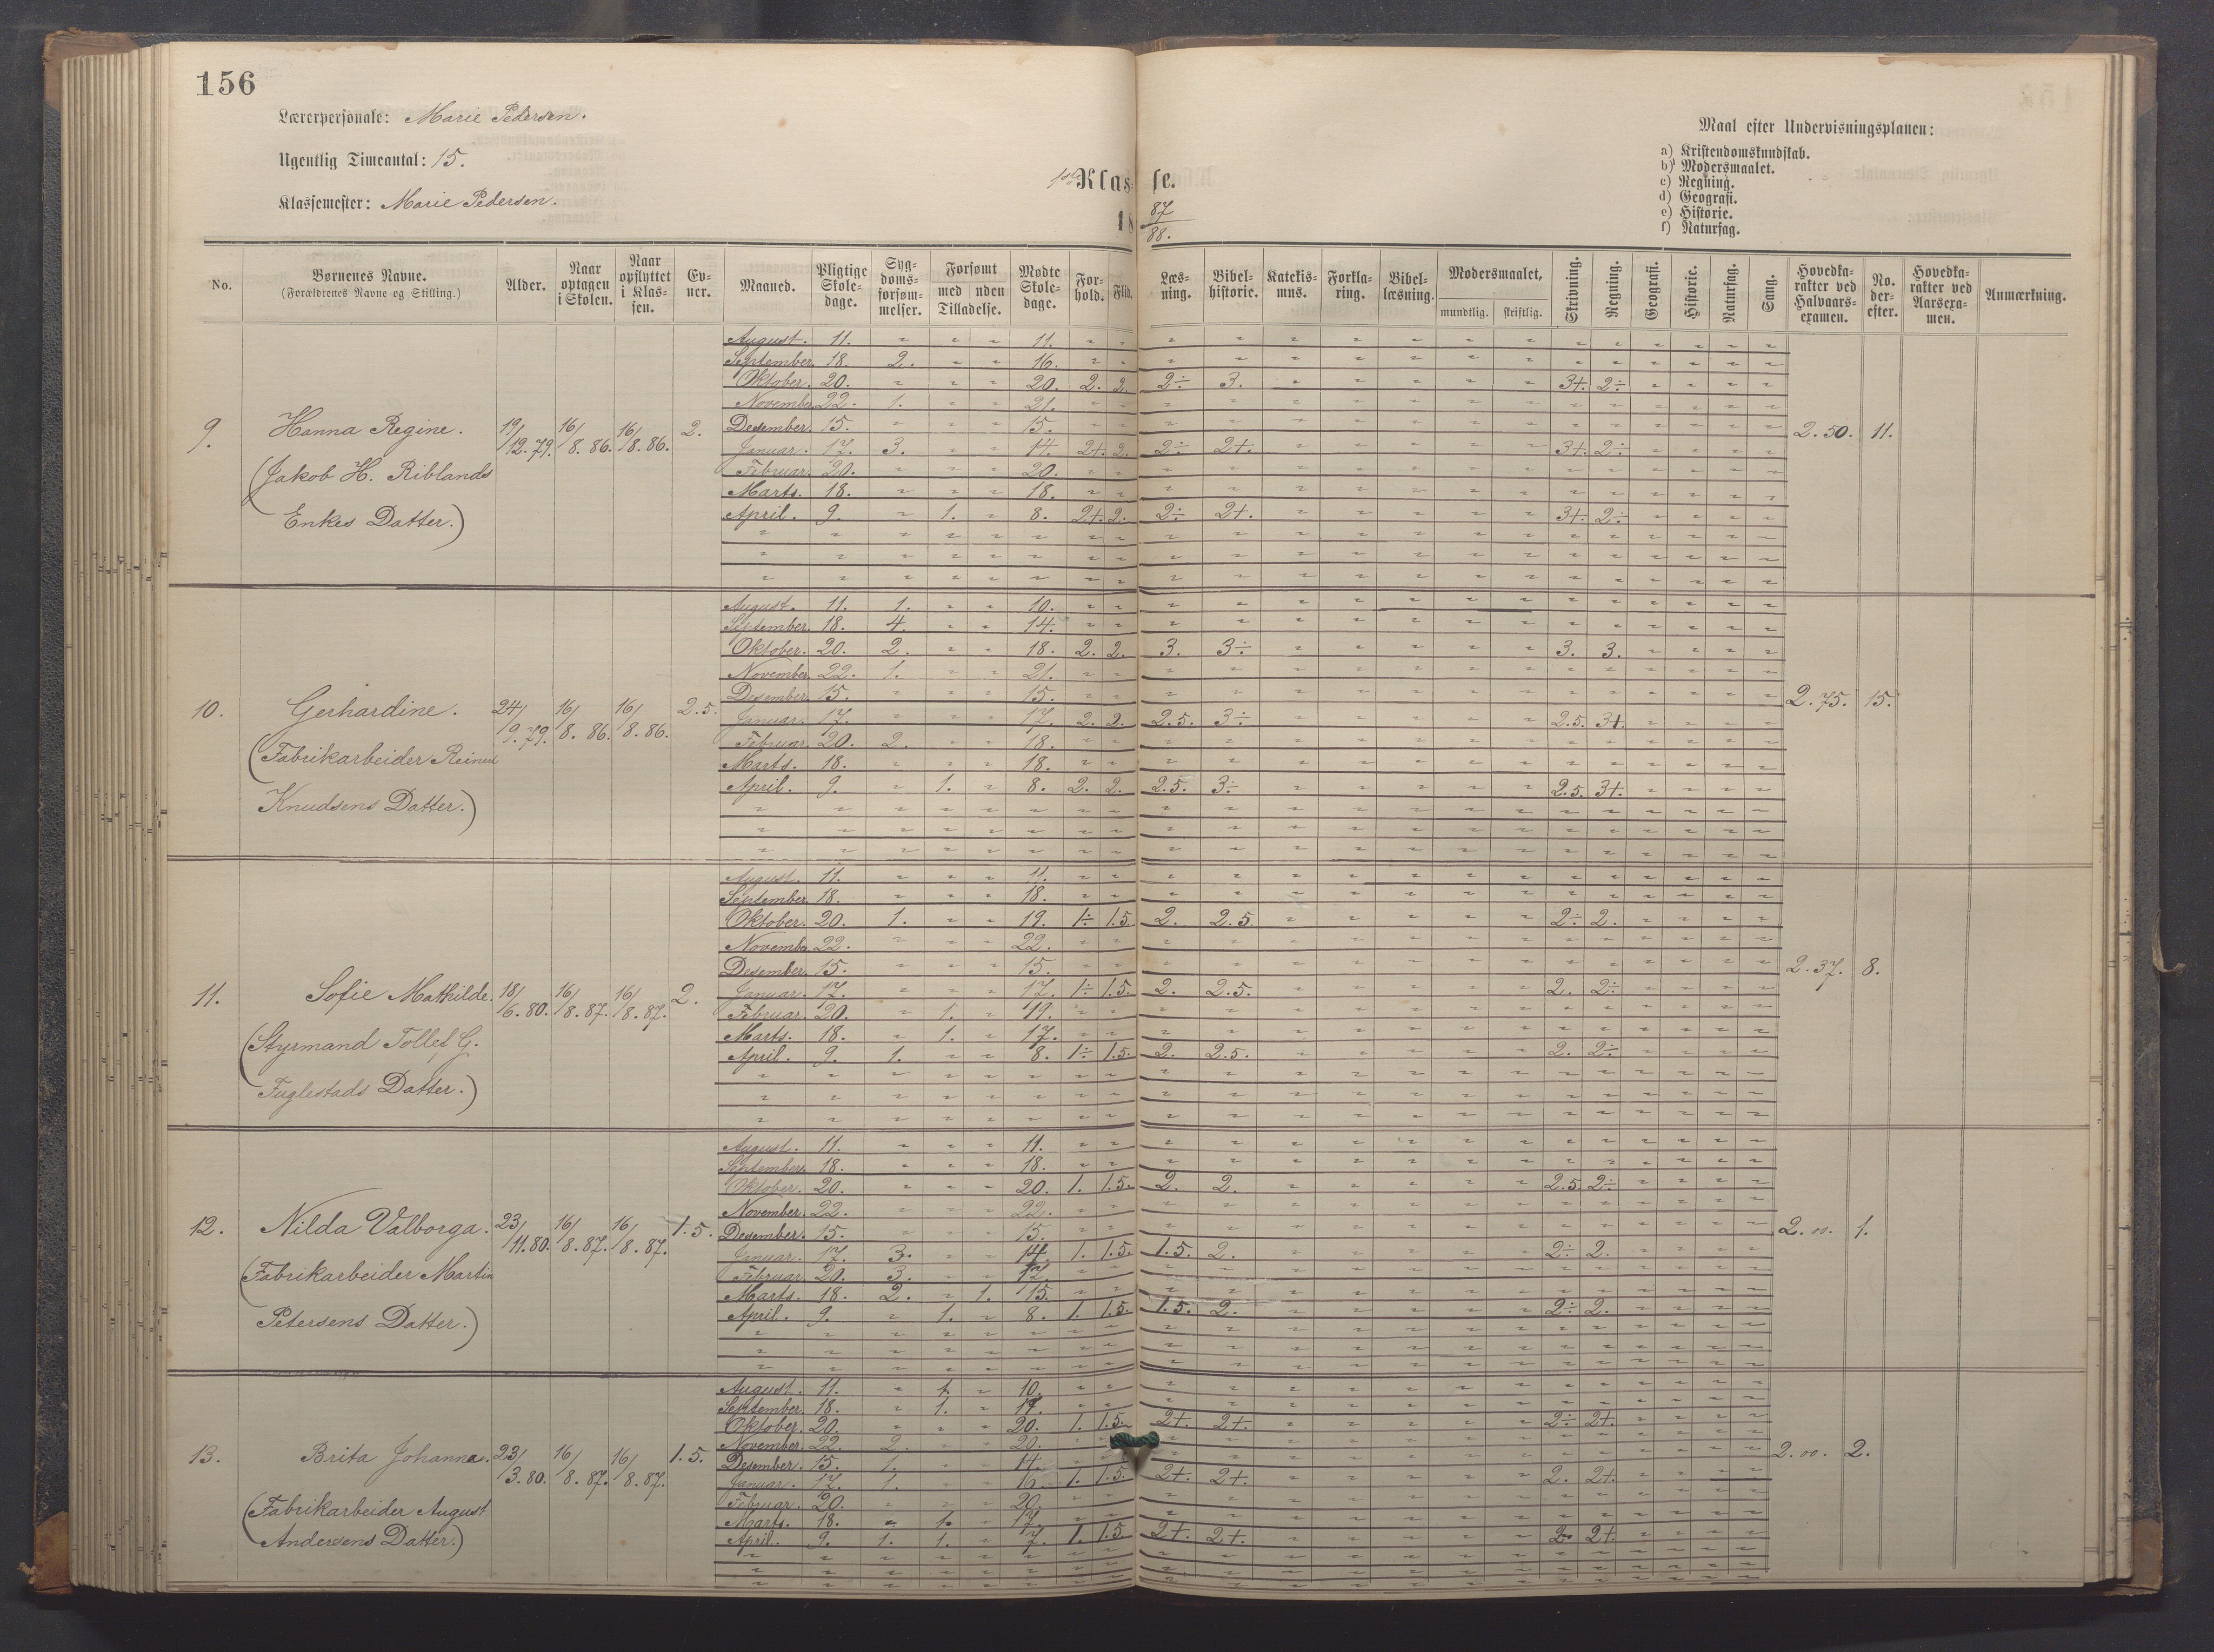 156
Lærerpersonale: Marie Pedersen.
Ugentlig Timeantal: 15.
Klassemester: Marie Pedersen.
1ste Klasse.
18 87/88.
Maal efter Undervisningsplanen:
a) Kristendomskundskab.
b) Modersmaalet.
c) Regning.
d) Geografi.
e) Historie.
f) Naturfag.
No. | Børnenes Navne. (Forældrenes Navne og Stilling.) | Alder. | Naar optagen i Skolen. | Naar opflyttet i Klassen. | Evner. | Maaned. | Pligtige Skoledage. | Sygdomsforsømmelser. | Forsømt med uden Tilladelse. | Mødte Skoledage. | Forhold. | Flid. | Læsning. | Bibelhistorie. | Katekismus. | Forklaring. | Bibellæsning. | Modersmaalet, mundtlig. skriftlig. | Skrivning. | Regning. | Geografi. | Historie. | Naturfag. | Sang. | Hovedkarakter ved Halvaarsexamen. | No. derefter. | Hovedkarakter ved Aarsexamen. | Anmærkning.
9. Hanna Regine. 19/12.79. 16/8.86. 16/8.86. 2. 2.50. 11.
(Jakob H. Riblands
Enkes Datter.)
August. 11. " " " 11. " "
September. 18. 2. " " 16. " "
Oktober. 20. " " " 20. 2. 2. 2÷ 3. " " " " " 3+. 2÷
November. 22. 1. " " 21. " "
Desember. 15. " " " 15. " "
Januar. 17. 3. " " 14. 2+. 2. 2÷ 2+. " " " " " 3+. 2÷
Februar. 20. " " " 20. " "
Marts. 18. " " " 18. " "
April. 9. " 1. " 8. 2+. 2. 2÷ 2+. " " " " " 3+. 2÷
10. Gerhardine. 24/9.79. 16/8.86. 16/8.86. 2.5. 2.75. 15.
(Fabrikarbeider Reinert
Knudsens Datter.)
August. 11. 1. " " 10. " "
September. 18. 4. " " 14. " "
Oktober. 20. 2. " " 18. 2. 2. 3. 3÷ " " " " " 3. 3.
November. 22. 1. " " 21. " "
Desember. 15. " " " 15. " "
Januar. 17. " " " 17. 2. 2. 2.5. 3÷ " " " " " 2.5. 3+.
Februar. 20. 2. " " 18. " "
Marts. 18. " " " 18. " "
April. 9. " 1. " 8. 2. 2. 2.5. 3÷ " " " " " 2.5. 3+.
11. Sofie Mathilde. 18/6.80. 16/8.87. 16/8.87. 2. 2.37. 8.
(Styrmand Tollef G.
Fuglestads Datter.)
August. 11. " " " 11. " "
September. 18. " " " 18. " "
Oktober. 20. 1. " " 19. 1÷ 1.5. 2. 2.5. " " " " " 2÷ 2.
November. 22. " " " 22. " "
Desember. 15. " " " 15. " "
Januar. 17. " " " 17. 1÷ 1.5. 2. 2.5. " " " " " 2. 2÷
Februar. 20. " 1. " 19. " "
Marts. 18. " 1. " 17. " "
April. 9. 1. " " 8. 1÷ 1.5. 2. 2.5. " " " " " 2. 2÷
12. Nilda Valborga. 23/11.80. 16/8.87. 16/8.87. 1.5. 2.00. 1.
(Fabrikarbeider Martin
Petersens Datter.)
August. 11. " " " 11. " "
September. 18. " " " 18. " "
Oktober. 20. " " " 20. 1. 1.5. 2. 2. " " " " " 2.5. 2÷
November. 22. " " " 22. " "
Desember. 15. " " " 15. " "
Januar. 17. 3. " " 14. 1. 1.5. 1.5. 2. " " " " " 2÷ 2.
Februar. 20. 3. " " 17. " "
Marts. 18. 2. " 1. 15. " "
April. 9. " 1. " 8. 1. 1.5. 1.5. 2. " " " " " 2÷ 2.
13. Brita Johanna. 23/3.80. 16/8.87. 16/8.87. 1.5. 2.00. 2.
(Fabrikarbeider August
Andersens Datter.)
August. 11. " 1. " 10. " "
September. 18. " 1. " 17. " "
Oktober. 20. " " " 20. 1. 1.5. 2+. 2+. " " " " " 2÷ 2+.
November. 22. 2. " " 20. "
Desember. 15. 1. " " 14.
Januar. 17. 1. " " 16. 1. 1.5. 2+. 2+. " " " " " 2. 2+.
Februar. 20. " " " 20. " "
Marts. 18. " 1. " 17. " "
April. 9. 1. 1. " 7. 1. 1.5. 2+. 2+. " " " " " 2. 2+.